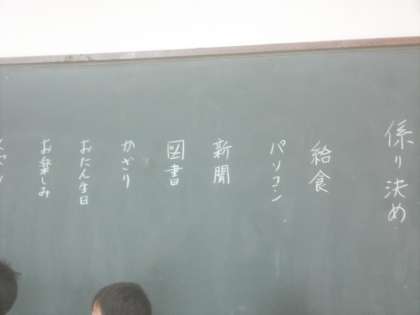 係り決め
給食
パソコン
新聞
図書
かざり
おたん生日
お楽しみ